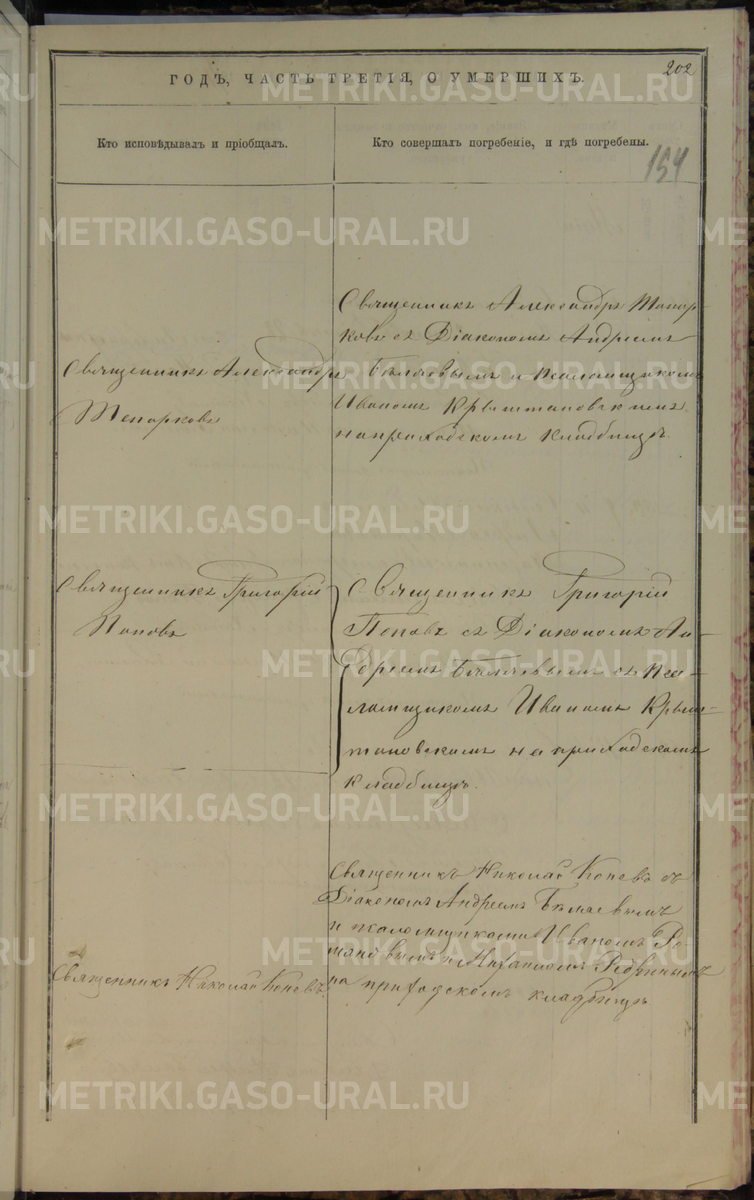 202
ГОДЪ, ЧАСТЬ ТРЕТІЯ, О УМЕРШИХЪ.
Кто исповѣдывалъ и пріобщалъ.
Кто совершалъ погребеніе, и гдѣ погребены.
154
Священникъ Александръ
Топорковъ
Священникъ Александръ Топор-
ковъ съ Діакономъ Андреемъ
Бѣляевымъ и Псаломщикомъ
Иваномъ Крыштановскимъ
на приходскомъ кладбищѣ
Священникъ Григорій
Поповъ
Священникъ Григорій
Поповъ съ Діакономъ Ан-
дреемъ Бѣляевымъ съ Пса-
ломщикомъ Иваномъ Крыш-
тановскимъ на приходскомъ
кладбищѣ.
Священникъ Николай Коневъ
Священникъ Николай Коневъ съ
Діакономъ Андреемъ Бѣляевымъ
и псаломщиками Иваномъ
и
на приходскомъ кладбищѣ
METRIKI.GASO-URAL.RU